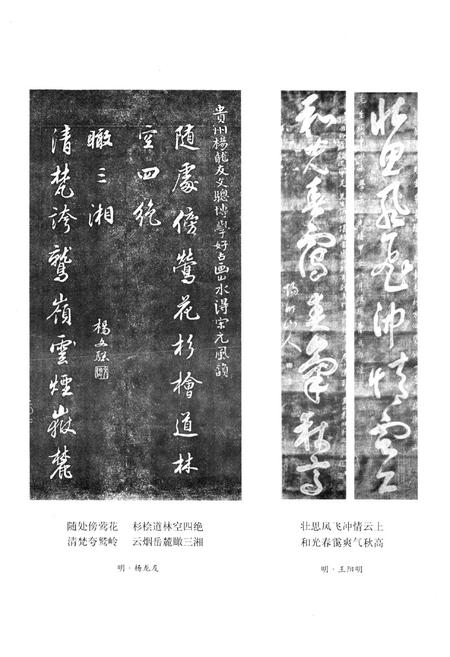 贵州楊龍友文驄博學好古画山水得宋元風韻
随處傍鶯花杉檜道林
空四絶
瞰三湘
清梵誇鷲嶺雲煙嶽麓
楊文驄
壮思風飛沖情雲上
和光春靄爽氣秋高
陽明山人
随处傍莺花 杉桧道林空四绝
清梵夸鹫岭 云烟岳麓瞰三湘
明·杨龙友
壮思风飞冲情云上
和光春霭爽气秋高
明·王阳明